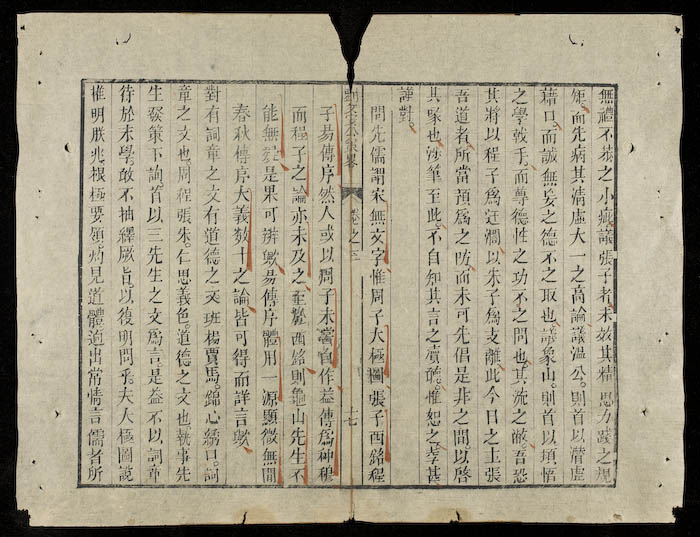 無禮不恭之小疵議張子者未效其精思力踐之規
矩而先病其清虛大一之高論議溫公則首以潛虛
藉口而誠無妄之德不之取也議象山則首以頓悟
之學戟手而尊德性之功不之問也其流之敝吾恐
其將以程子為迂濶以朱子為支離此今日之主張
吾道者所當預為之防而未可先倡是非之間以啓
其寡也涉筆至此不自知其言之瀆敢惟恕之幸甚
謹對
問先儒謂宋無文字惟周子太極圖張子西銘程
卷之三
十七
子易傳序然人或以周子未嘗自作益傳為种穆
而程子之論亦未及之至於西銘則龜山先生不
能無疑是果可辨歟易傳序體用一源顯微無間
春秋傳序大義數十之論皆可得而詳言歟
對有詞章之文有道德之文班楊賈馬錦心綉口詞
章之文也周程張朱仁思義色道德之文也執事先
生發策下詢首以三先生之文為言是益不以詞章
待於末學敢不抽繹厥旨以復明問乎夫太極圖說
推明朕兆根極要領灼見道體迥出常情言儒者所